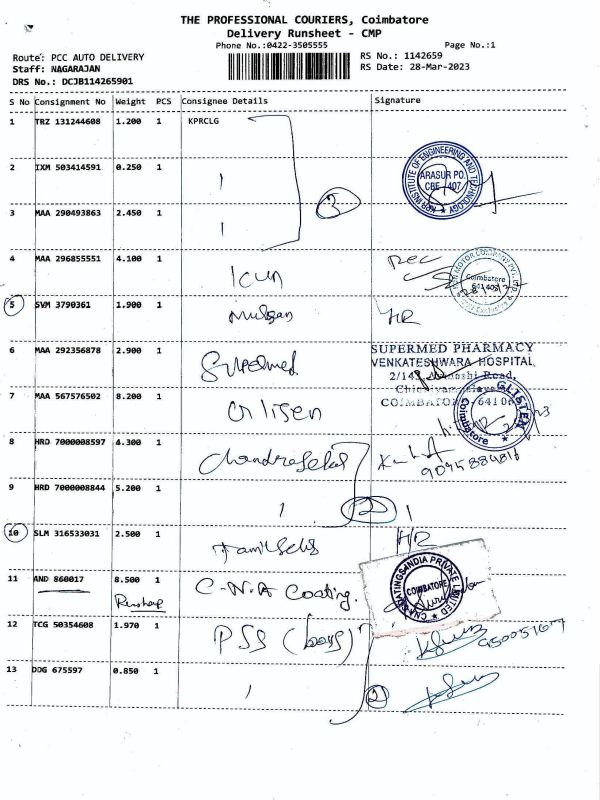 THE PROFESSIONAL COURIERS, Coimbatore
Delivery Runsheet - CMP
Phone No.:0422-3505555
Page No.:1
Route: PCC AUTO DELIVERY
RS No.: 1142659
Staff: NAGARAJAN
RS Date: 28-Mar-2023
DRS No.: DCJB114265901
S No Consignment No Weight PCS Consignee Details Signature
1 TRZ 131244608 1.200 1 KPRCLG
2 IXM 503414591 0.250 1
ARASUR PO.
CBE 407
3 MAA 290493863 2.450 1
3
4 MAA 296855551 4.100 1
Rec
Coimbatore
5 SVM 3790361 1.900 1 HR
6 MAA 292356878 2.900 1 Supermed
SUPERMED PHARMACY
VENKATESHWARA HOSPITAL,
7 MAA 567576502 8.200 1
COIMBATORE
GLISTEN
Coimbatore
8 HRD 7000008597 4.300 1
9 HRD 7000008844 5.200 1
2
10 SLM 316533031 2.500 1 HR
11 AND 860017 8.500 1 C.N.A Coating.
COIMBATORE
12 TCG 50354608 1.970 1 PSS (boys)
13 DDG 675597 0.850 1
2